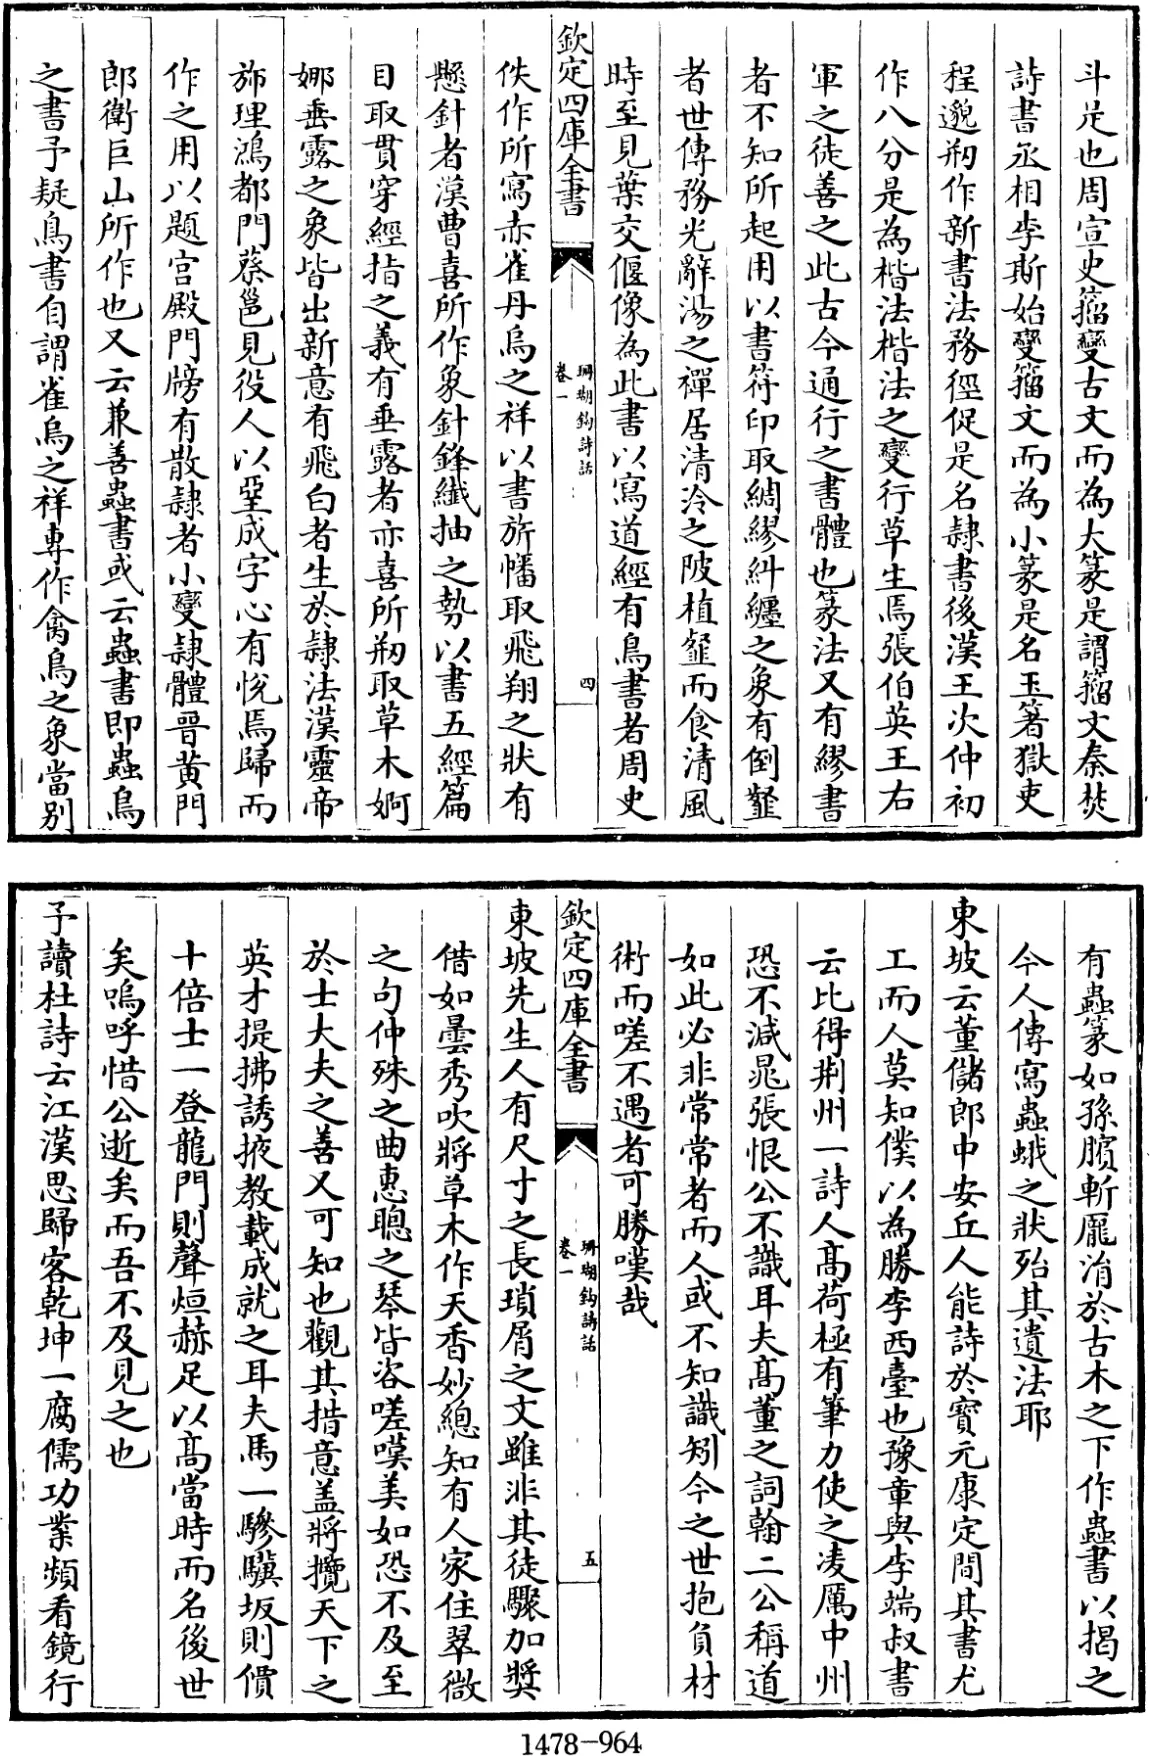 斗是也周宣史籀變古文而為大篆是謂籀文秦焚
詩書丞相李斯始變籀文而為小篆是名玉箸獄吏
程邈剏作新書法務徑促是名隷書後漢王次仲初
作八分是為楷法楷法之變行草生焉張伯英王右
軍之徒善之此古今通行之書體也篆法又有繆書
者不知所起用以書符印取綢繆糾纒之象有倒韰
者世傳務光辭湯之禪居清泠之陂植韰而食清風
時至見葉交偃像為此書以寫道經有鳥書者周史
欽定四庫全書
珊瑚鈎詩話
卷一
四
佚作所寫赤雀丹烏之祥以書旂幡取飛翔之狀有
懸針者漢曹喜所作象針鋒纎抽之勢以書五經篇
目取貫穿經指之義有垂露者亦喜所剏取草木婀
娜垂露之象皆出新意有飛白者生於隷法漢靈帝
飾理鴻都門蔡邕見役人以堊成字心有悅焉歸而
作之用以題宫殿門牓有散隷者小變隷體晉黄門
郎衛巨山所作也又云兼善蟲書或云蟲書即蟲鳥
之書予疑鳥書自謂雀烏之祥專作禽鳥之象當别
有蟲篆如孫臏斬龐涓於古木之下作蟲書以揭之
今人傳寫蟲蛾之狀殆其遺法耶
東坡云董儲郎中安丘人能詩於寳元康定間其書尤
工而人莫知僕以為勝李西臺也豫章與李端叔書
云比得荆州一詩人髙荷極有筆力使之凌厲中州
恐不減晁張恨公不識耳夫髙董之詞翰二公稱道
如此必非常常者而人或不知識矧今之世抱負材
術而嗟不遇者可勝嘆哉
欽定四庫全書
珊瑚鈎詩話
卷一
五
東坡先生人有尺寸之長瑣屑之文雖非其徒驟加奨
借如曇秀吹將草木作天香妙總知有人家住翠微
之句仲殊之曲惠聰之琴皆咨嗟嘆美如恐不及至
於士大夫之善又可知也觀其措意盖將攬天下之
英才提拂誘掖教載成就之耳夫馬一驂驥坂則價
十倍士一登龍門則聲烜赫足以髙當時而名後世
矣嗚呼惜公逝矣而吾不及見之也
予讀杜詩云江漢思歸客乾坤一腐儒功業頻看鏡行
1478-964